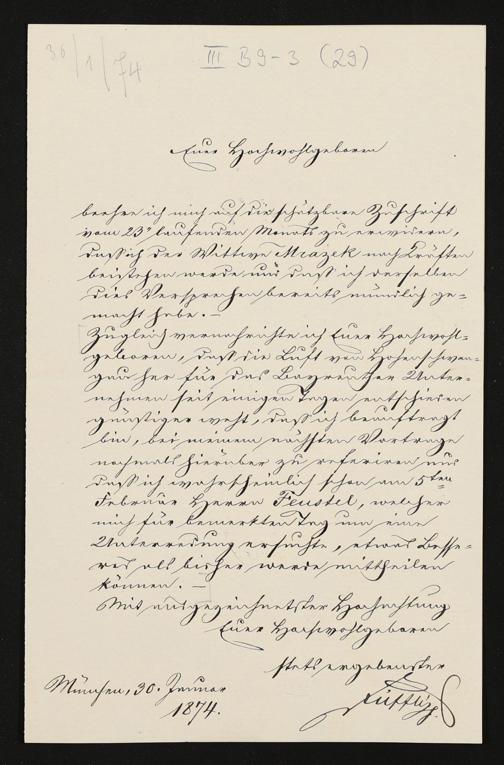 30/1/74
III B 9-3 (29)
Euer Hochwohlgeboren
beehre ich mich auf die schätzbare Zuschrift
vom 23t laufenden Monats zu erwiedern,
dass ich der Wittwe Mrazek nach Kräften
beistehen werde und dass ich derselben
dies Versprechen bereits mündlich ge=
macht habe. –
Zugleich vernachrichte ich Euer Hochwohl=
geboren, dass die Luft von Hohenschwan=
gau her für das Bayreuther Unter=
nehmen seit einigen Tagen entschieden
günstiger weht, dass ich beauftragt
bin, bei meinem nächsten Vortrage
nochmals hierüber zu referiren und
dass ich wahrscheinlich schon am 5ten
Februar Herrn Feustel, welcher
mich für bemerkten Tag um eine
Unterredung ersuchte, etwas Besse=
res als bisher werde mittheilen
können. –
Mit ausgezeichnetster Hochachtung
Euer Hochwohlgeboren
stets ergebenster
Düfflipp.
München, 30. Januar
1874.